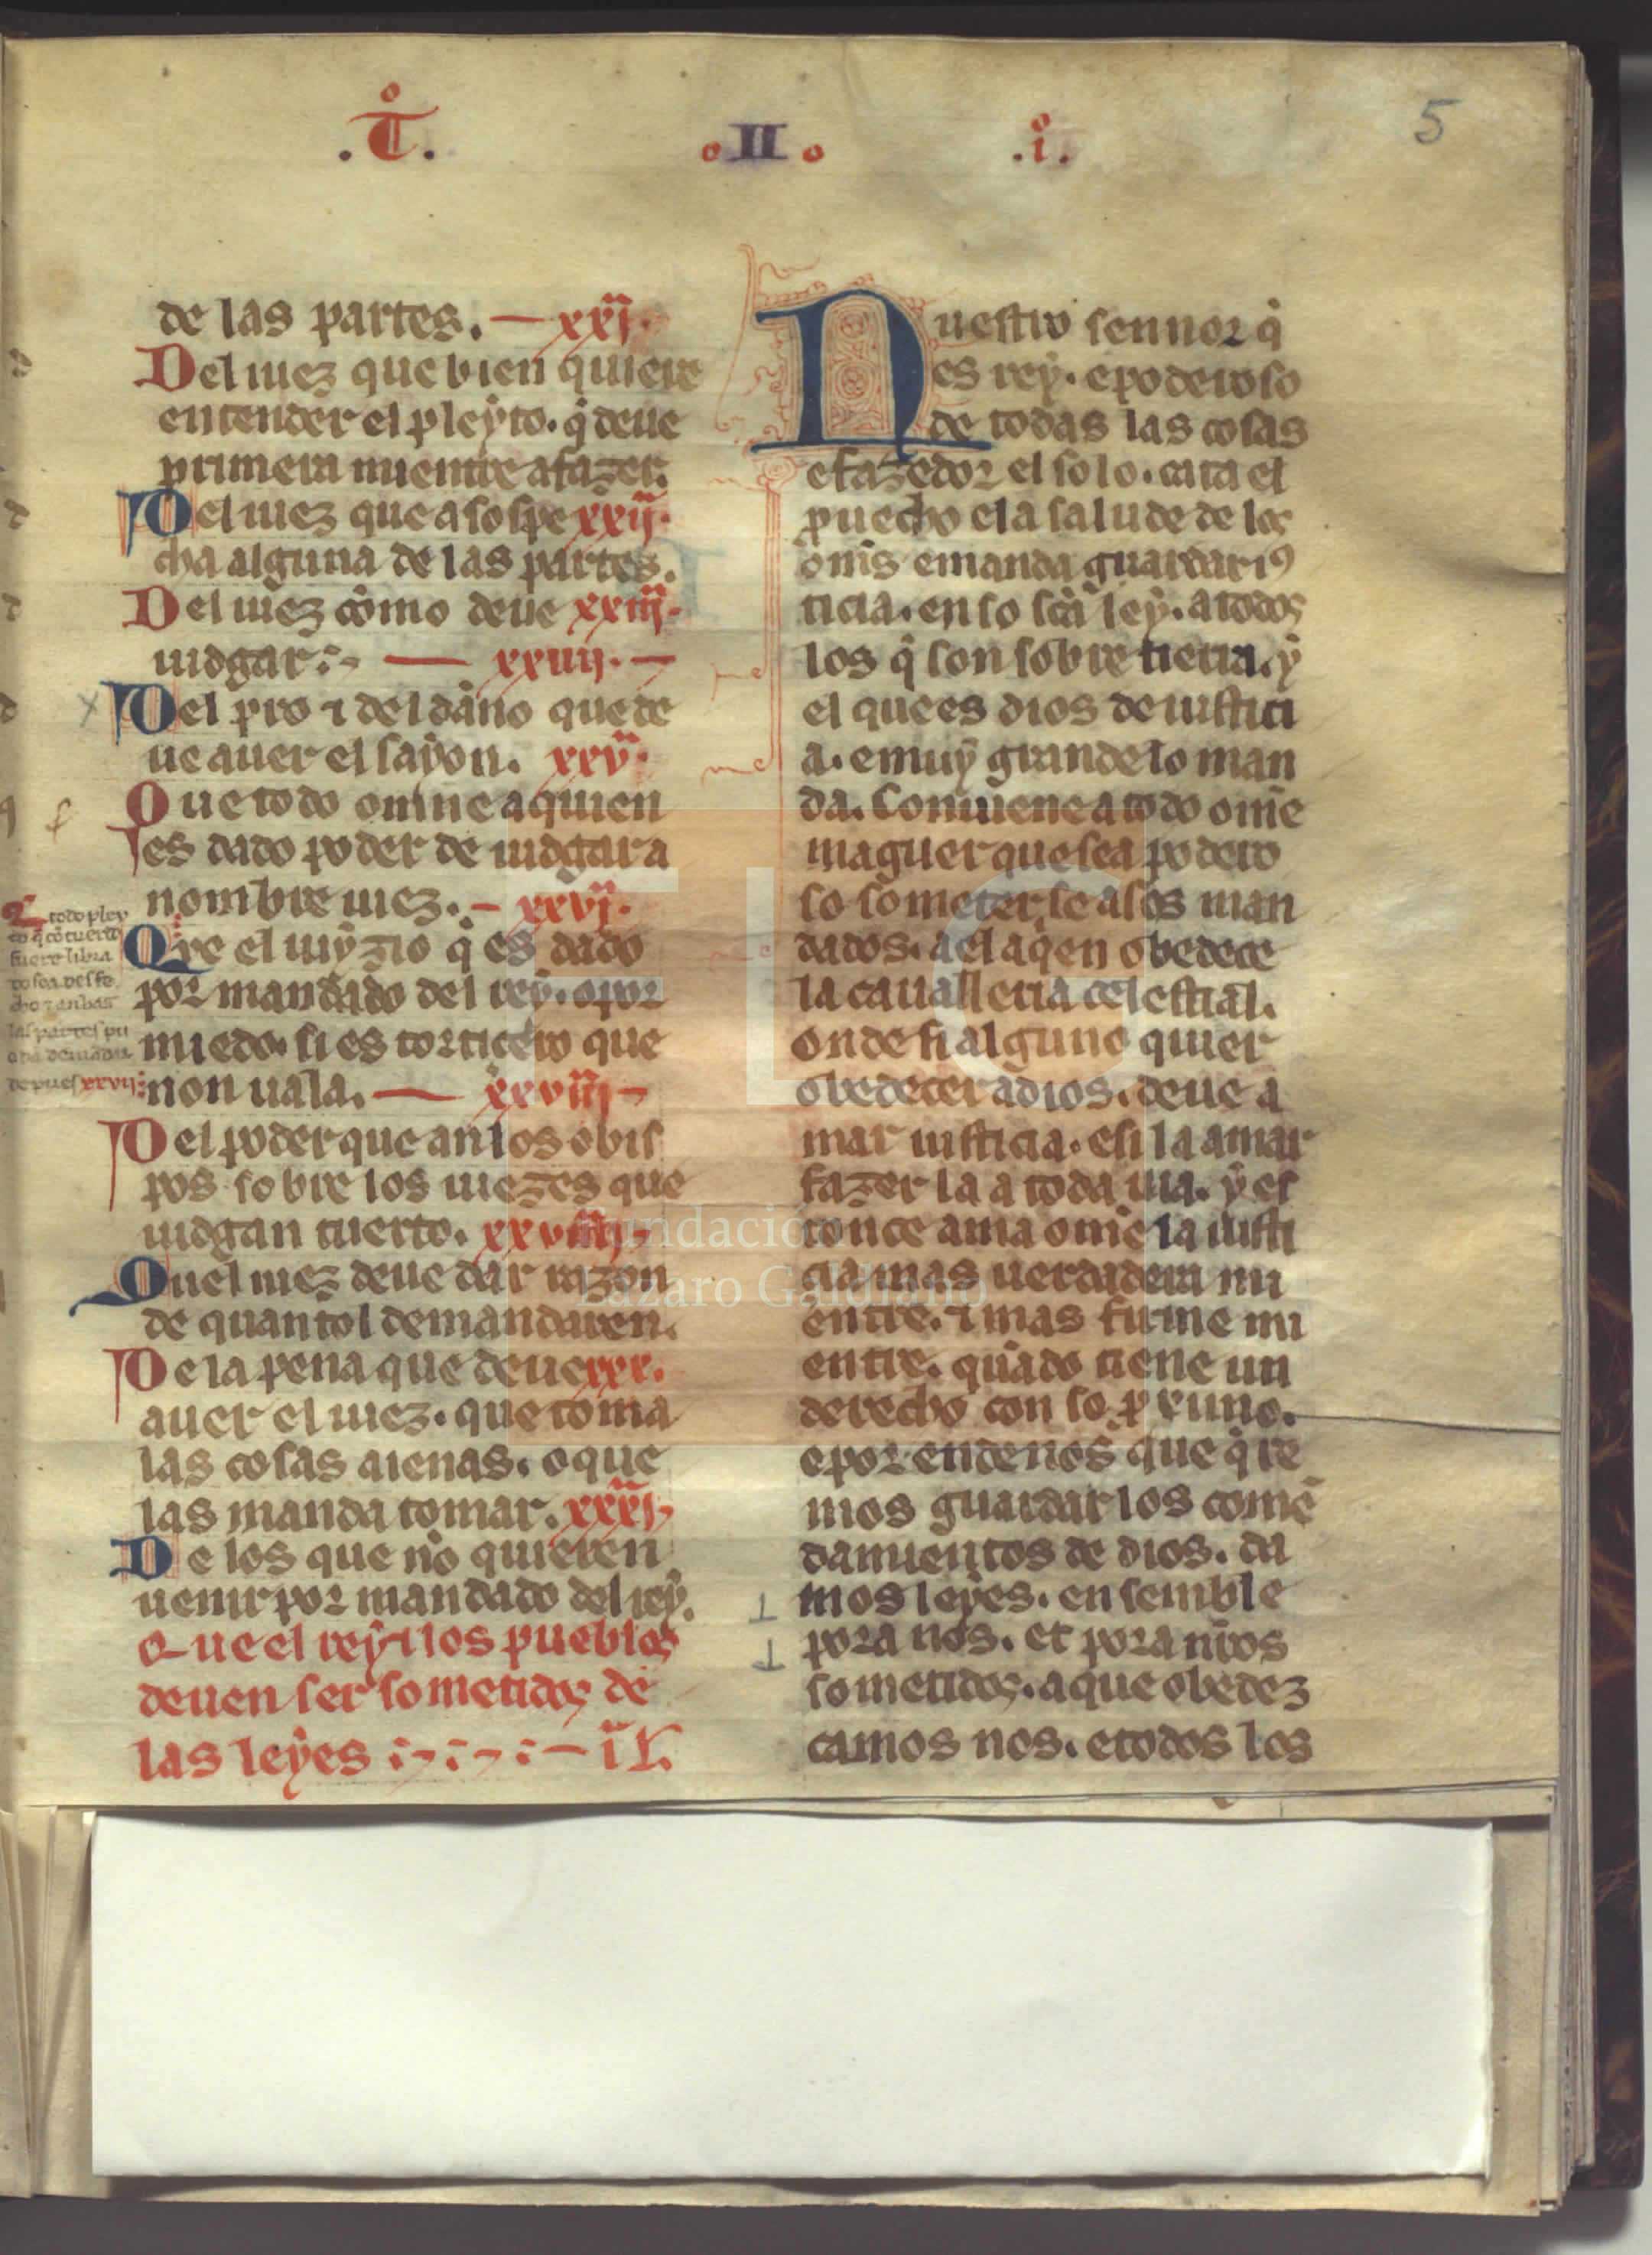 .T̊. .II. .i̊. 5
de las partes. — xxj.
Del iuez que bien quiere
entender el pleyto. q̇ deue
primera miente a fazer.
Del iuez que a sospe xxij.
cha alguna de las partes.
Del iuez cỏmo deue xxiij.
iudgar: — xxiiij. —
Del pro ⁊ del dãno que de
ue auer el sayon. xxv.
Que todo omne a quien
es dado poder de iudgar a
nombre iuez. — xxvj.
Qre el iuyzio q̇ es dado
por mandado del rey. o por
miedo. si es torticero que
non uala. — xxviij —
Del poder que an los obis
pos sobre los iuezes que
iudgan tuerto. xxviiij
Quel iuez deue dar razon
de quantol demandaren.
De la pena que deue xxx.
auer el iuez. que toma
las cosas aienas. o que
las manda tomar. xxxj.
De los que nõ quieren
uenir por mandado del rey.
Que el rey ⁊ los pueblos
deuen ser sometidos de
las leyes :-:-:- i ł.
todo pley
to q̇ cõ tuerto
fuere libra
do sea desfe
cho ⁊ anbas
las partes pu
depues xxvij:
Nuestro sennor q̇
es rey. e poderoso
de todas las cosas
e fazedor el solo. cata el
ꝓuecho e la salude de los
om̃s e manda guardar iꝰ
ticia. en so scã ley. a todos
los q̇ son sobre tierra. y
el que es dios de iustici
a. e muy grande lo man
da. Conuiene a todo om̃e
maguer que sea podero
so someter se a sos man
dados. a el a q̇en obedece
la caualleria celestial.
onde si alguno quier
obedecer a dios. deue a
mar iusticia. e si la amar
fazer la a toda uia. y es
tonce ama om̃e la iusti
cia mas uerdadera mi
entre. ⁊ mas firme mi
entre. quãdo tiene un
derecho con so ꝓximo.
e por ende nos que q̇re
mos guardar los comẽ
damientos de dios. da
mos leyes. en semble
pora nos. et pora nr̃os
sometidos. a que obedez
camos nos. e todos los
FLG
Fundación
Lázaro Galdiano